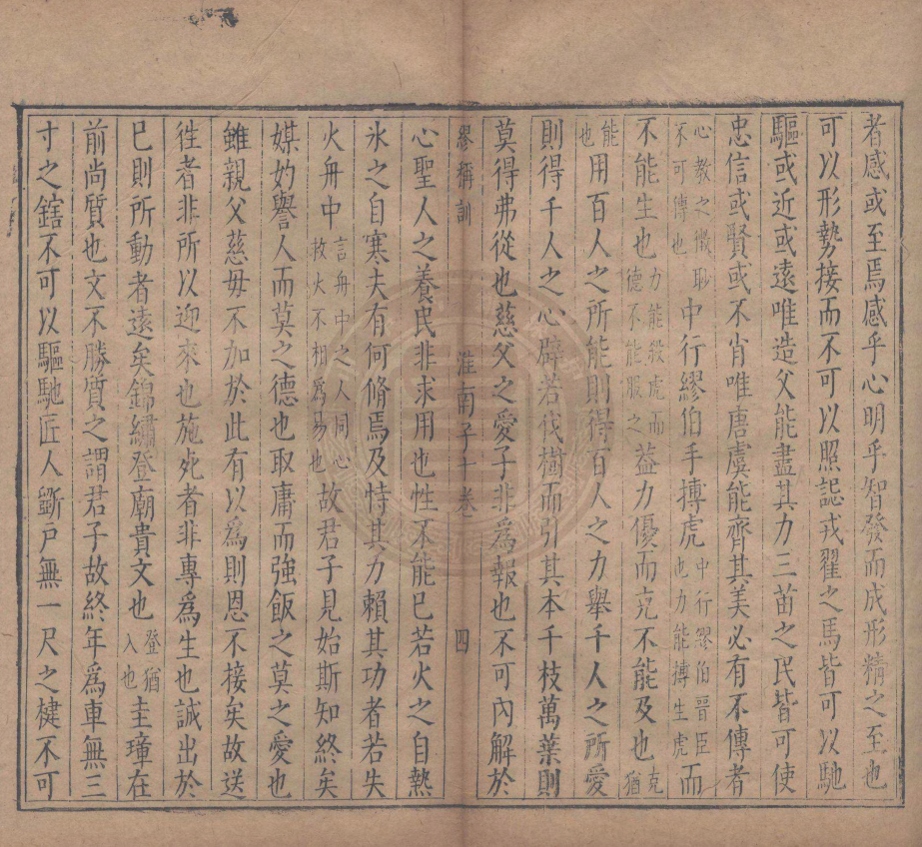 者感或至焉感乎心明乎智發而成形精之至也
可以形勢接而不可以照誋戎翟之馬皆可以馳
驅或近或遠唯造父能盡其力三苗之民皆可使
忠信或賢或不肖唯唐虞能齊其美必有不傳者
心教之微眇不可傳也中行繆伯手搏虎中行繆伯晉臣也力能搏生虎而
不能生也力能殺虎而德不能服之蓋力優而克不能及也克猶
能也用百人之所能則得百人之力舉千人之所愛
則得千人之心辟若伐樹而引其本千枝萬葉則
莫得弗從也慈父之愛子非爲報也不可內解於
繆稱訓 淮南子十卷 四
心聖人之養民非求用也性不能已若火之自熱
氷之自寒夫有何脩焉及恃其力賴其功者若失
火舟中言舟中之人同心救火不相爲易也故君子見始斯知終矣
媒妁譽人而莫之德也取庸而強飯之莫之愛也
雖親父慈母不加於此有以爲則恩不接矣故送
徃者非所以迎來也施死者非專爲生也誠出於
已則所動者遠矣錦繡登廟貴文也登猶入也圭璋在
前尚質也文不勝質之謂君子故終年爲車無三
寸之鎋不可以驅馳匠人斵戶無一尺之楗不可